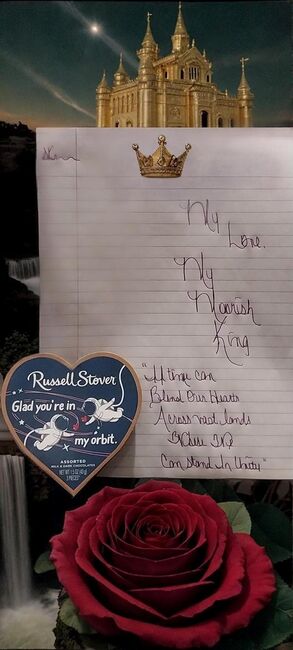 My
Love.
My
Moorish
King
"If time can
Blend Our Hearts
Across vast lands
Can Stand In Unity"
Russell Stover
Glad you're in
my orbit.
ASSORTED
MILK & DARK CHOCOLATES
NET WT 1.5 OZ (43 g)
3 PIECES